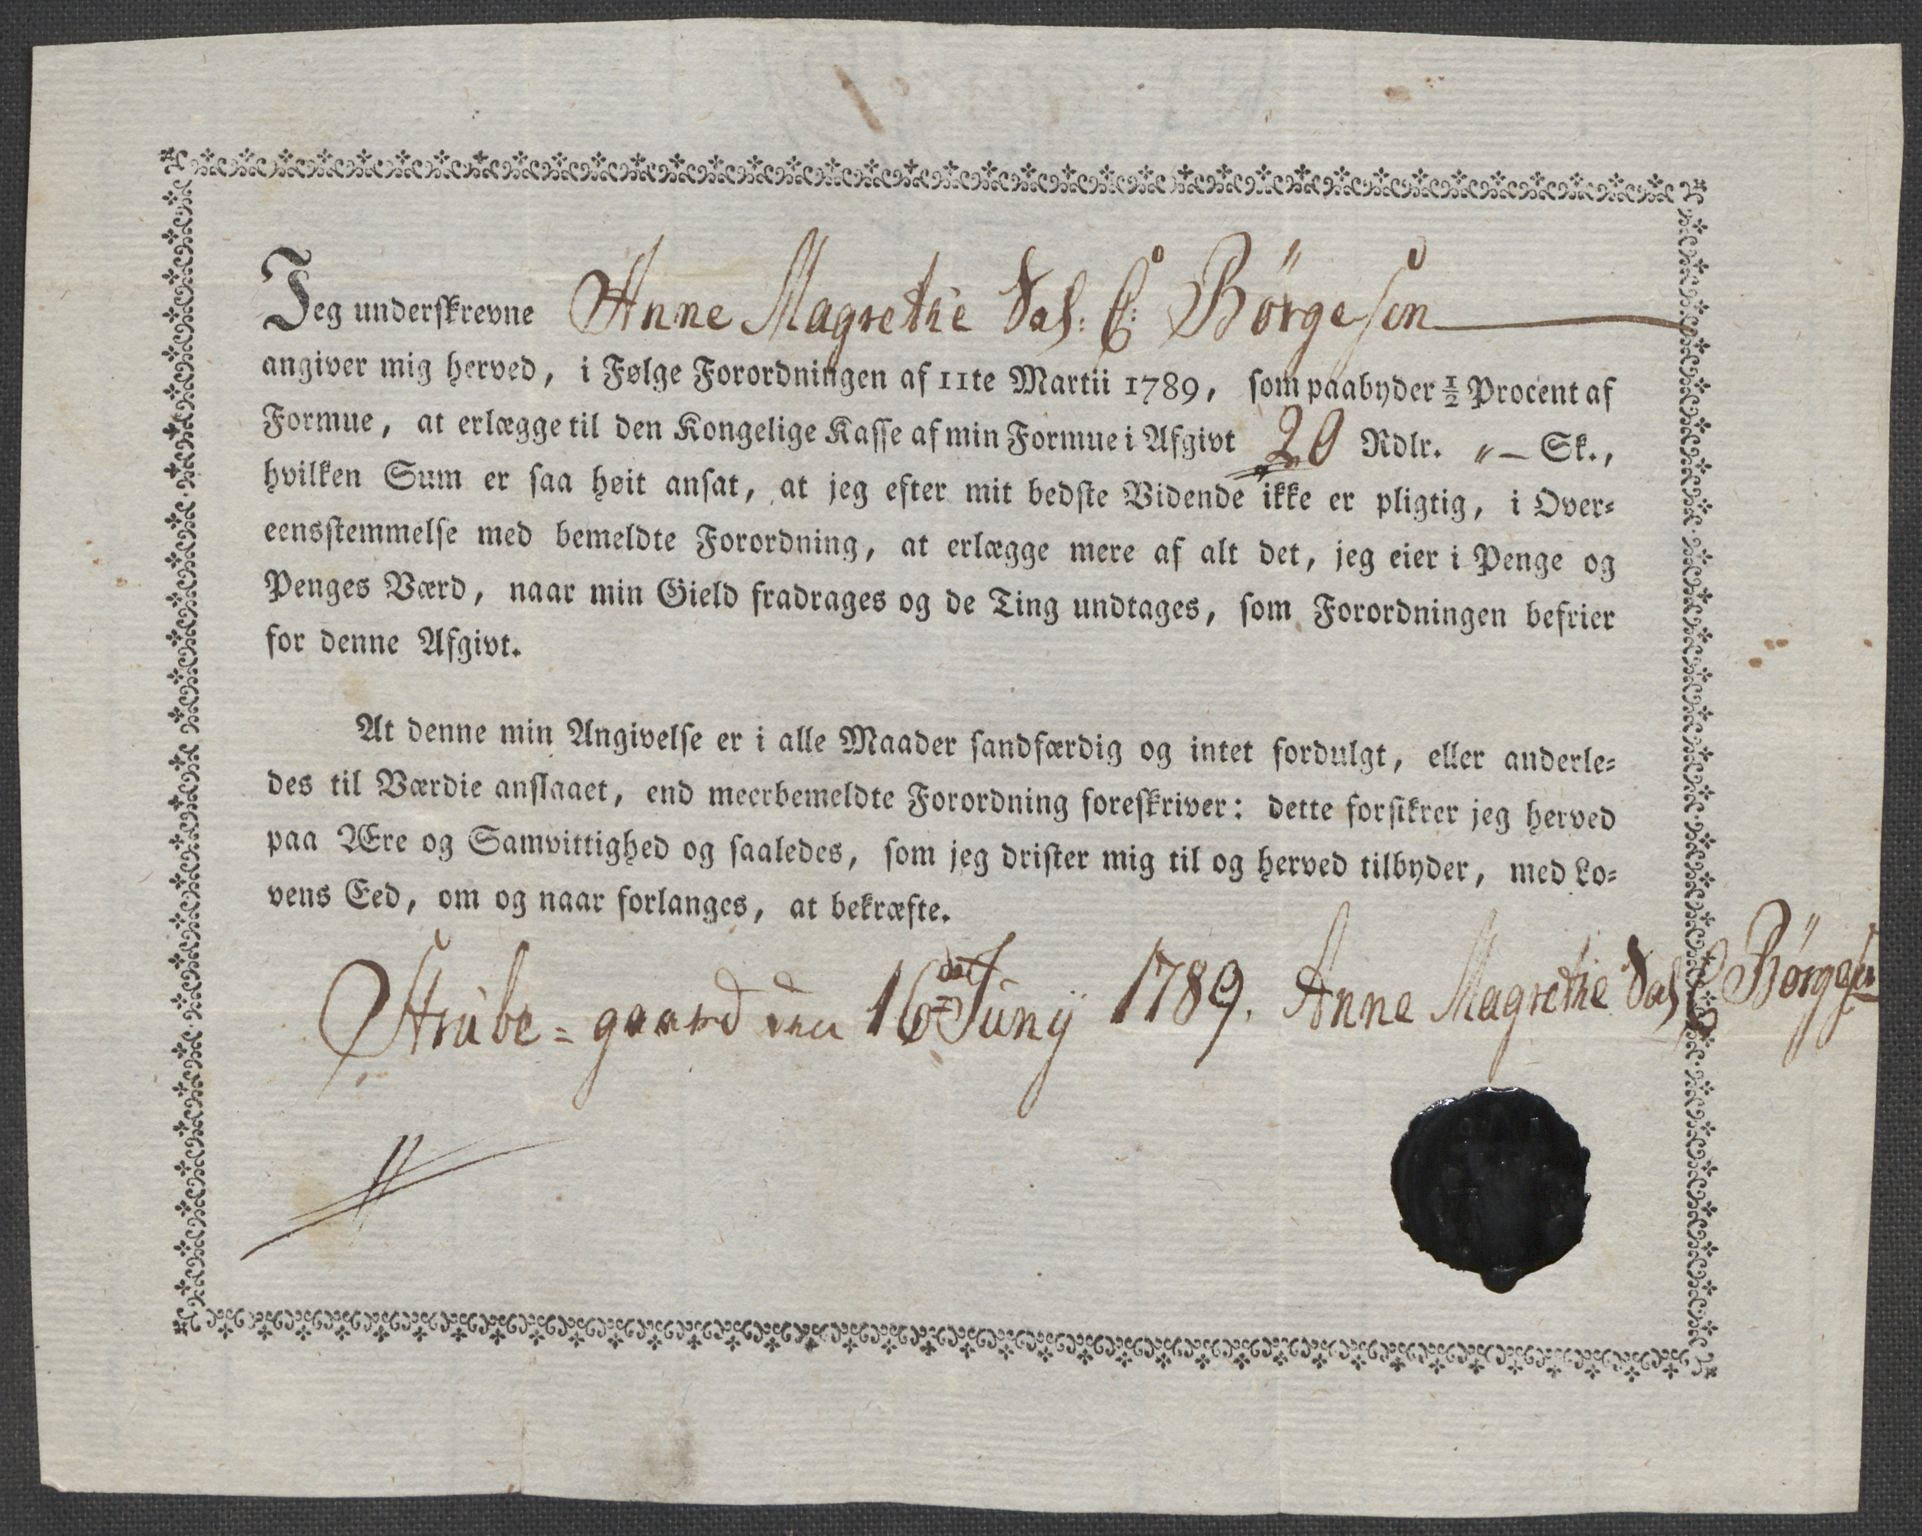 Jeg underskrevne Anne Magrethe Sal: C: Börgesen
angiver mig herved, i Følge Forordningen af 11te Martii 1789, som paabyder ½ Procent af
Formue, at erlægge til den Kongelige Kasse af min Formue i Afgivt 20 Rdlr. „ — Sk.,
hvilken Sum er saa høit ansat, at jeg efter mit bedste Vidende ikke er pligtig, i Over-
eensstemmelse med bemeldte Forordning, at erlægge mere af alt det, jeg eier i Penge og
Penges Værd, naar min Gield fradrages og de Ting undtages, som Forordningen befrier
for denne Afgivt.
At denne min Angivelse er i alle Maader sandfærdig og intet fordulgt, eller anderle-
des til Værdie anslaaet, end meerbemeldte Forordning foreskriver: dette forsikrer jeg herved
paa Ære og Samvittighed og saaledes, som jeg drister mig til og herved tilbyder, med Lo-
vens Eed, om og naar forlanges, at bekræfte.
Strube-gaard den 16de Junÿ 1789. Anne Magrethe Sal C Börgesen